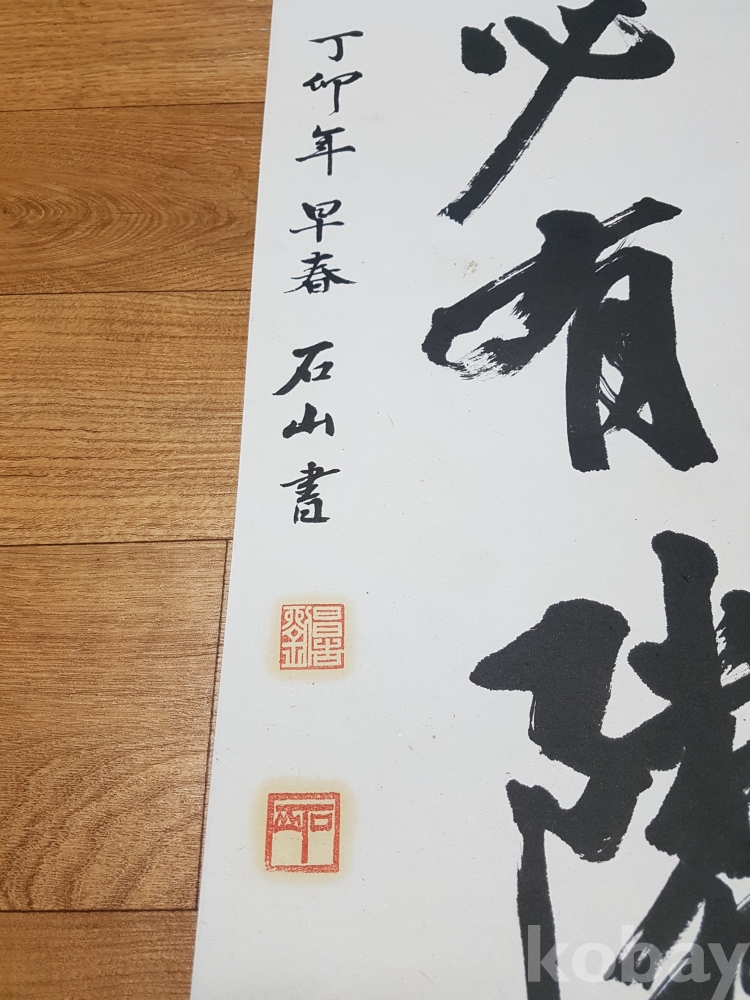 必有隣
丁卯年 早春 石山書
kobay